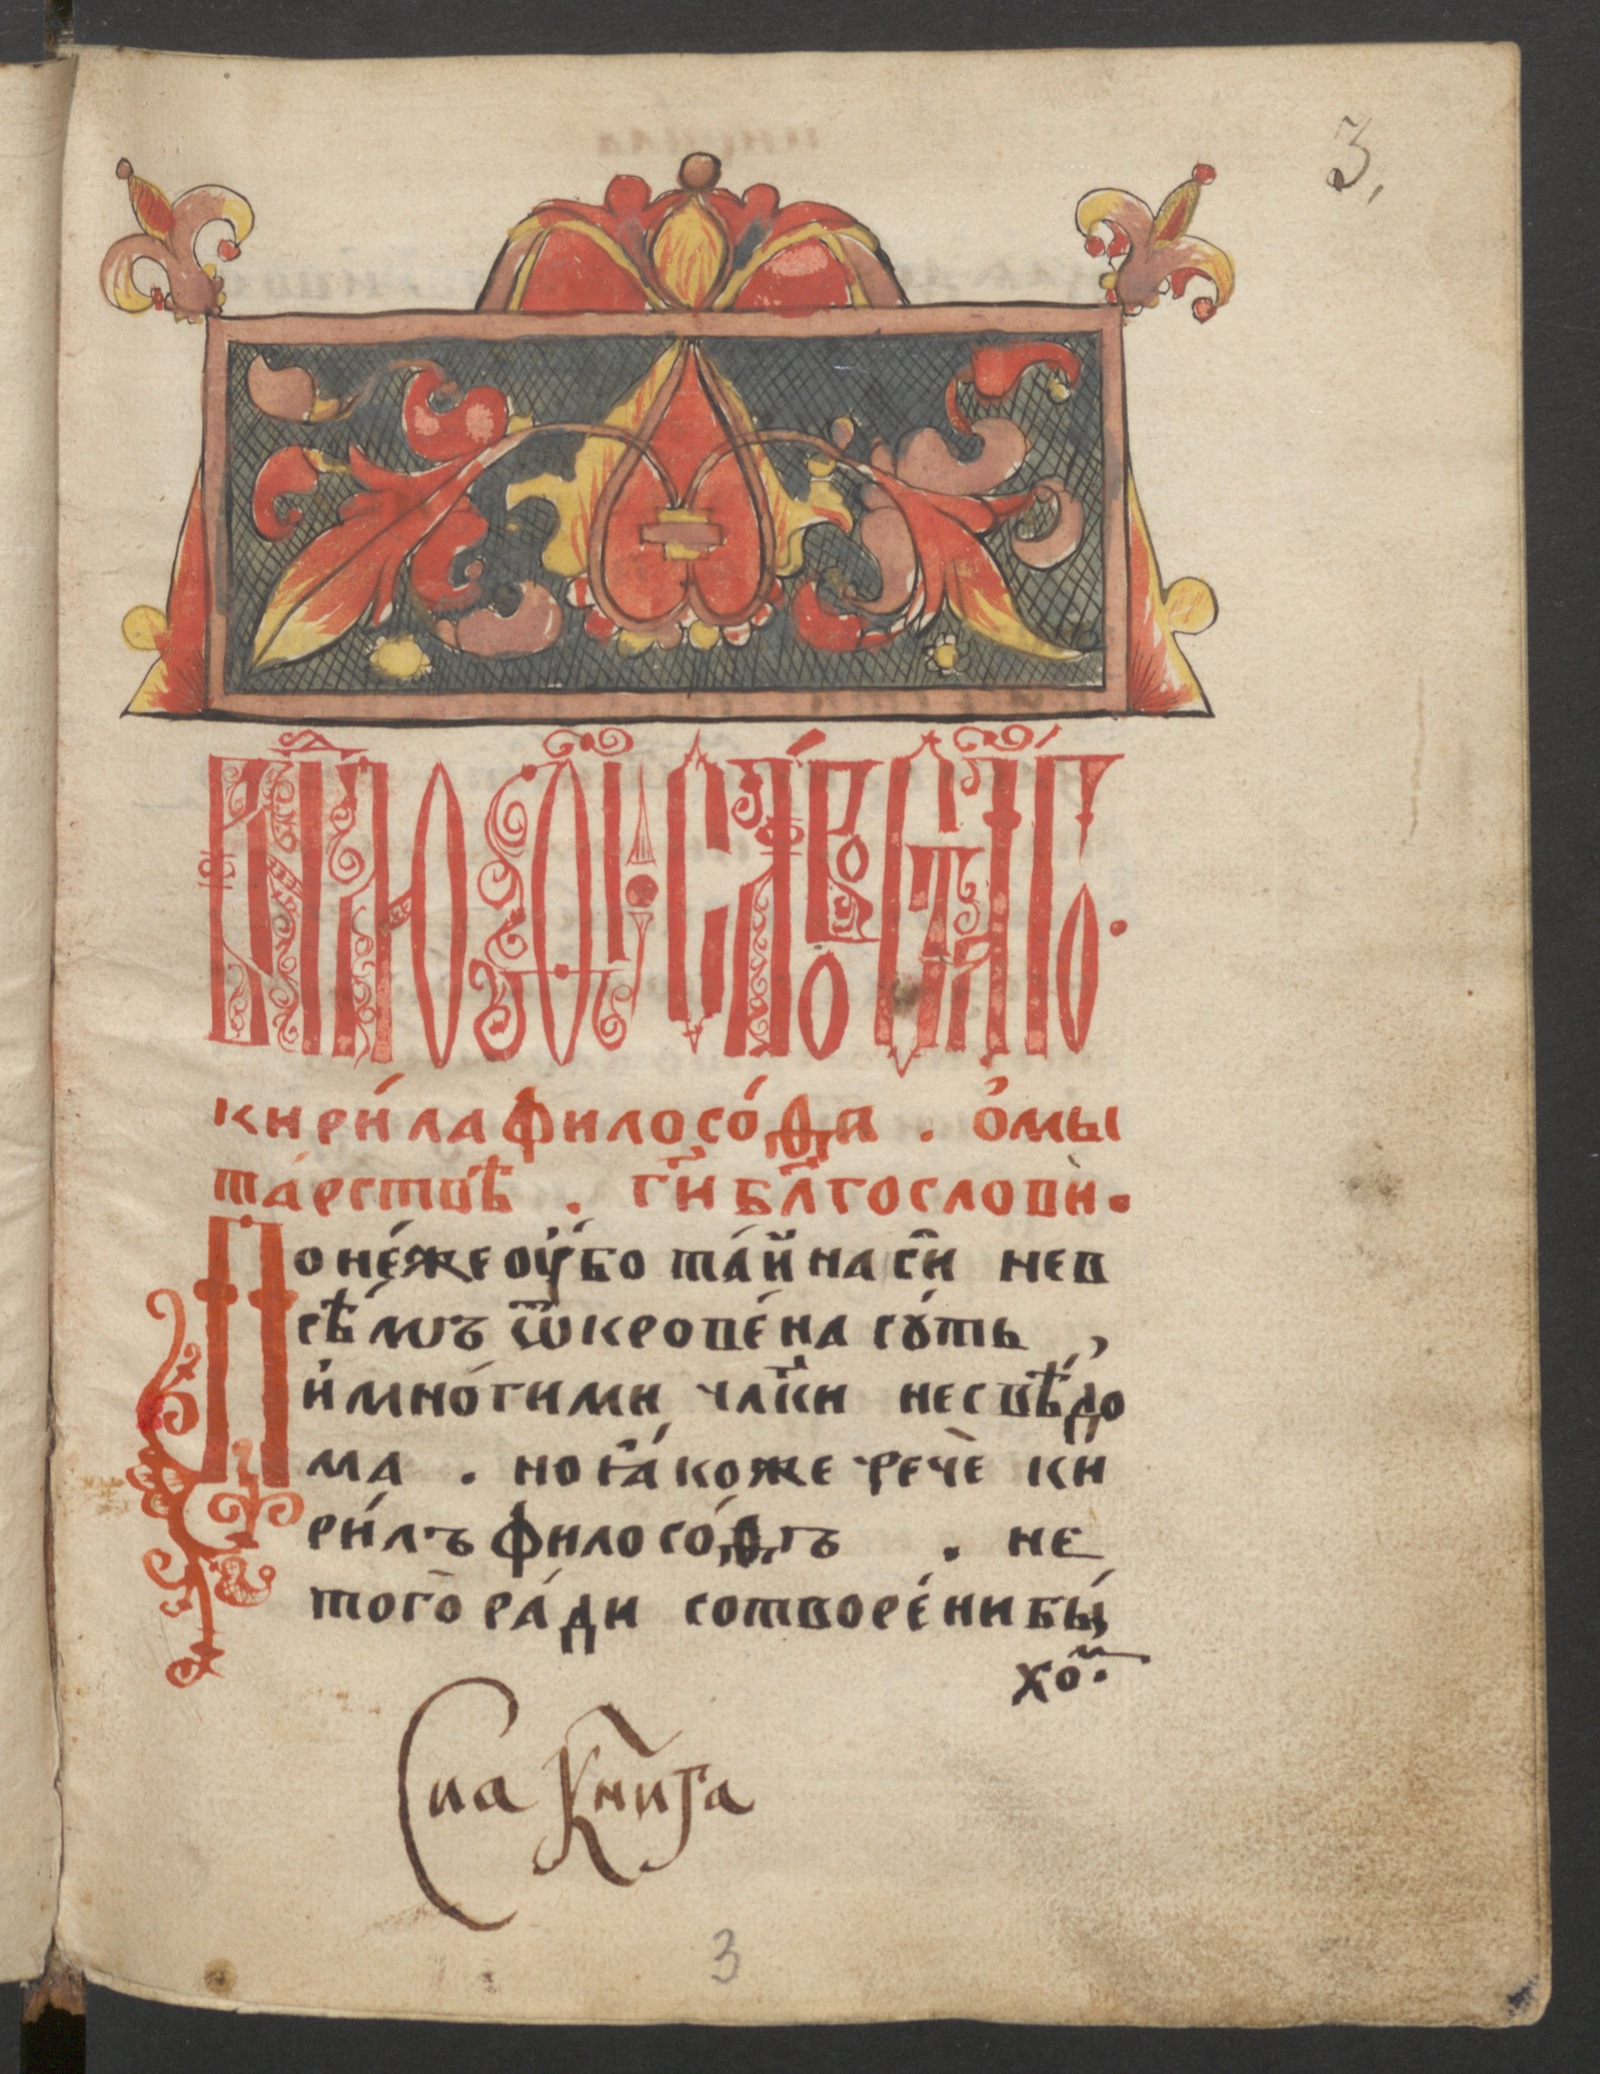 3,
кири́ла филосо́фа . о҆мы
та́рствѣ . гⷭ҇и бл҃гослови̇.
Поне́же ѹ҆́бо та́и҆на сїи нев
сѣ́мъ ѿкрове́на сꙋ́ть ,
и҆ мно́гими чл҃ки несвѣ́до
ма . но ꙗ҆́коже рече̏ ки
ри́лъ филосо́фъ . не
того̀ ра́ди сотворе́ни бы́
хоⷨ.
Сиа Книга
3